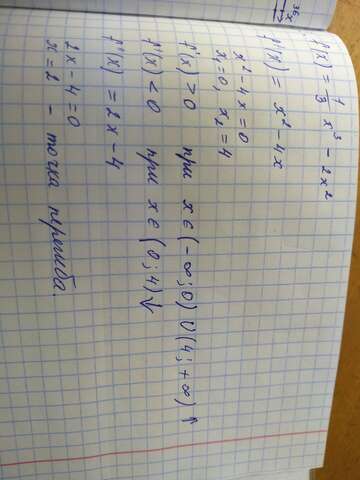 f(x) = 1/3 x³ - 2x²
f'(x) = x² - 4x
x² - 4x = 0
x₁ = 0, x₂ = 4
f'(x) > 0 при x ∈ (-∞; 0) ∪ (4; +∞) ↑
f'(x) < 0 при x ∈ (0; 4) ↓
f''(x) = 2x - 4
2x - 4 = 0
x = 2 - точка перегиба.